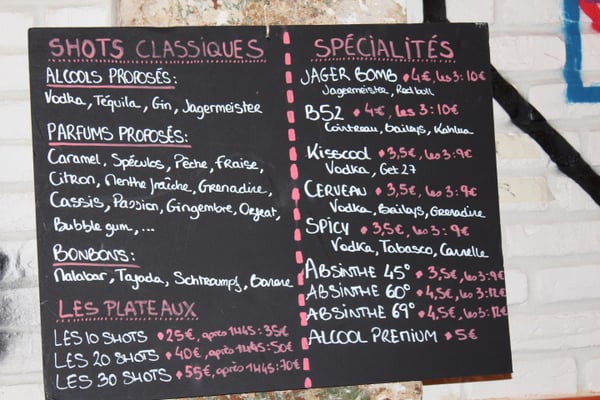 SHOTS CLASSIQUES
ALCOOLS PROPOSÉS:
Vodka, Téquila, Gin, Jagermeister
PARFUMS PROPOSÉS:
Caramel, Spéculos, Pêche, Fraise,
Citron, Menthe fraîche, Grenadine,
Cassis, Passion, Gingembre, Orgeat,
Bubble gum, ...
BONBONS:
Malabar, Tagada, Schtroumpf, Banane
LES PLATEAUX
LES 10 SHOTS 25€, après 1H45: 35€
LES 20 SHOTS 40€, après 1H45: 50€
LES 30 SHOTS 55€, après 1H45: 70€
SPÉCIALITÉS
JAGER BOMB 4€, les 3: 10€
Jagermeister, Red bull
B52 4€, les 3: 10€
Cointreau, baileys, Kahlua
Kisscool 3,5€, les 3: 9€
Vodka, Get 27
CERVEAU 3,5€, les 3: 9€
Vodka, Baileys, Grenadine
SPICY 3,5€, les 3: 9€
Vodka, Tabasco, Cannelle
ABSINTHE 45° 3,5€, les 3: 9€
ABSINTHE 60° 4,5€, les 3: 12€
ABSINTHE 69° 4,5€, les 3: 12€
ALCOOL PREMIUM 5€